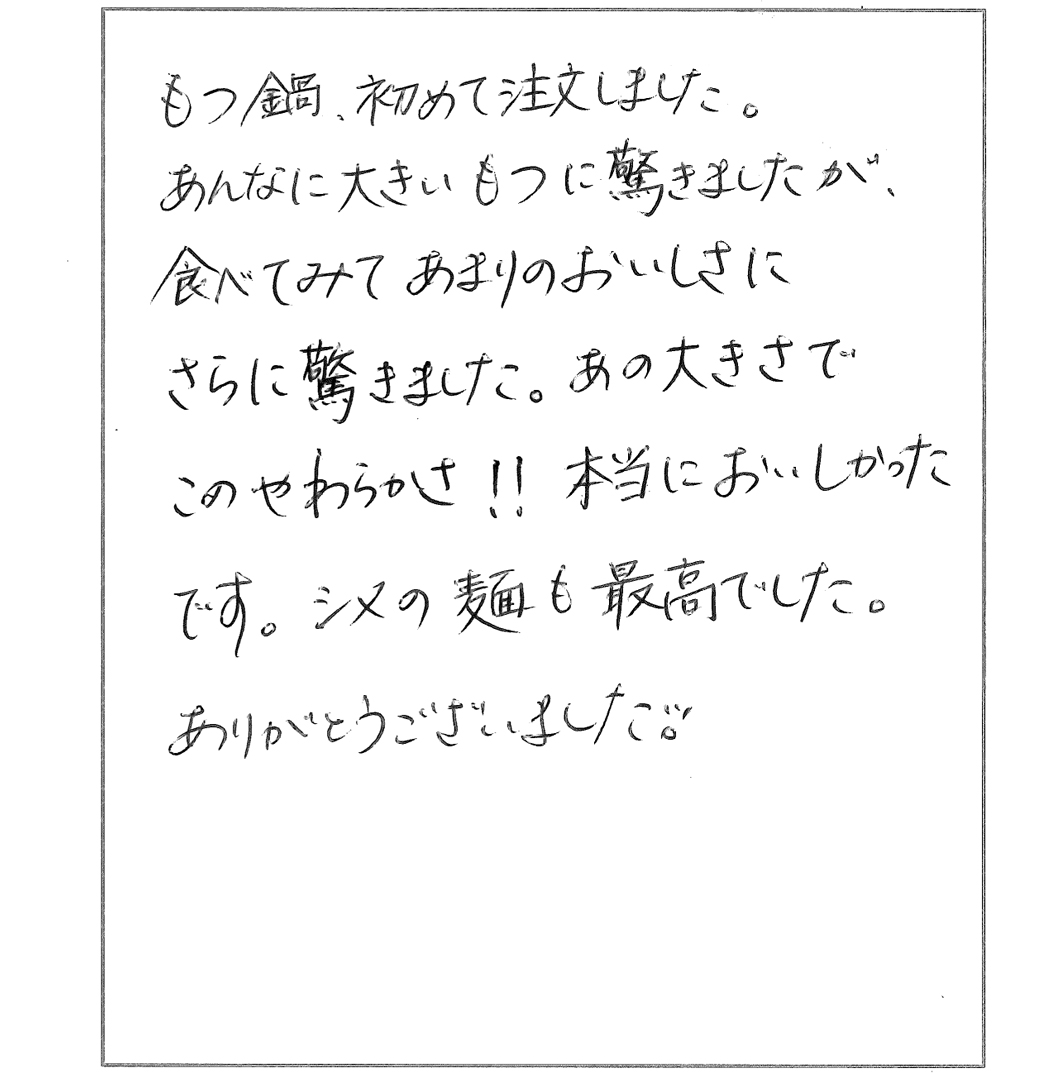 もつ鍋、初めて注文しました。
あんなに大きいもつに驚きましたが、
食べてみてあまりのおいしさに
さらに驚きました。あの大きさで
このやわらかさ!! 本当においしかった
です。シメの麺も最高でした。
ありがとうございました。